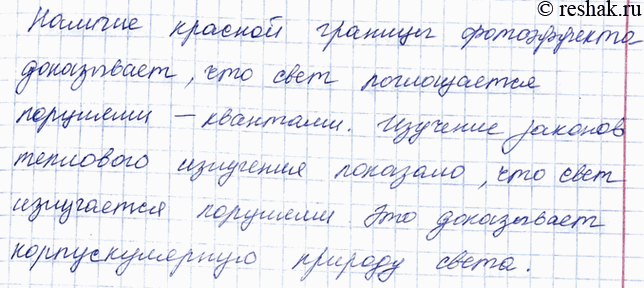 © reshak.ru
Наличие красной границы фотоэффекта
доказывает, что свет поглощается
порциями – квантами. Изучение законов
теплового излучения показало, что свет
излучается порциями Это доказывает
корпускулярную природу света.